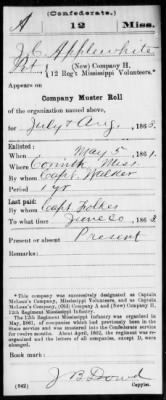 (Confederate.)
A 12 Miss.
J. C. Applewhite
Pvt., (New) Company H,
12 Reg't Mississippi Volunteers.*
Appears on
Company Muster Roll
of the organization named above,
for July & Aug, 1863.
Enlisted:
When May 5, 1861.
Where Corinth, Miss
By whom Capt. Walker
Period 1 yr
Last paid:
By whom Capt Folkes
To what time June 30, 1863
Present or absent Present
Remarks:
*This company was successively designated as Captain
McLean's Company, Mississippi Volunteers, and as Captain
McLean's Company, (Old) Company A and (New) Company H,
12th Regiment Mississippi Infantry.
The 12th Regiment Mississippi Infantry was organized in
May, 1861, of companies which had previously been in the
State service and was mustered into the Confederate service
for twelve months. About April, 1862, the regiment was re-
organized and the letters of all companies, except D, were
changed.
Book mark:
J B Dowd
(642) Copyist.